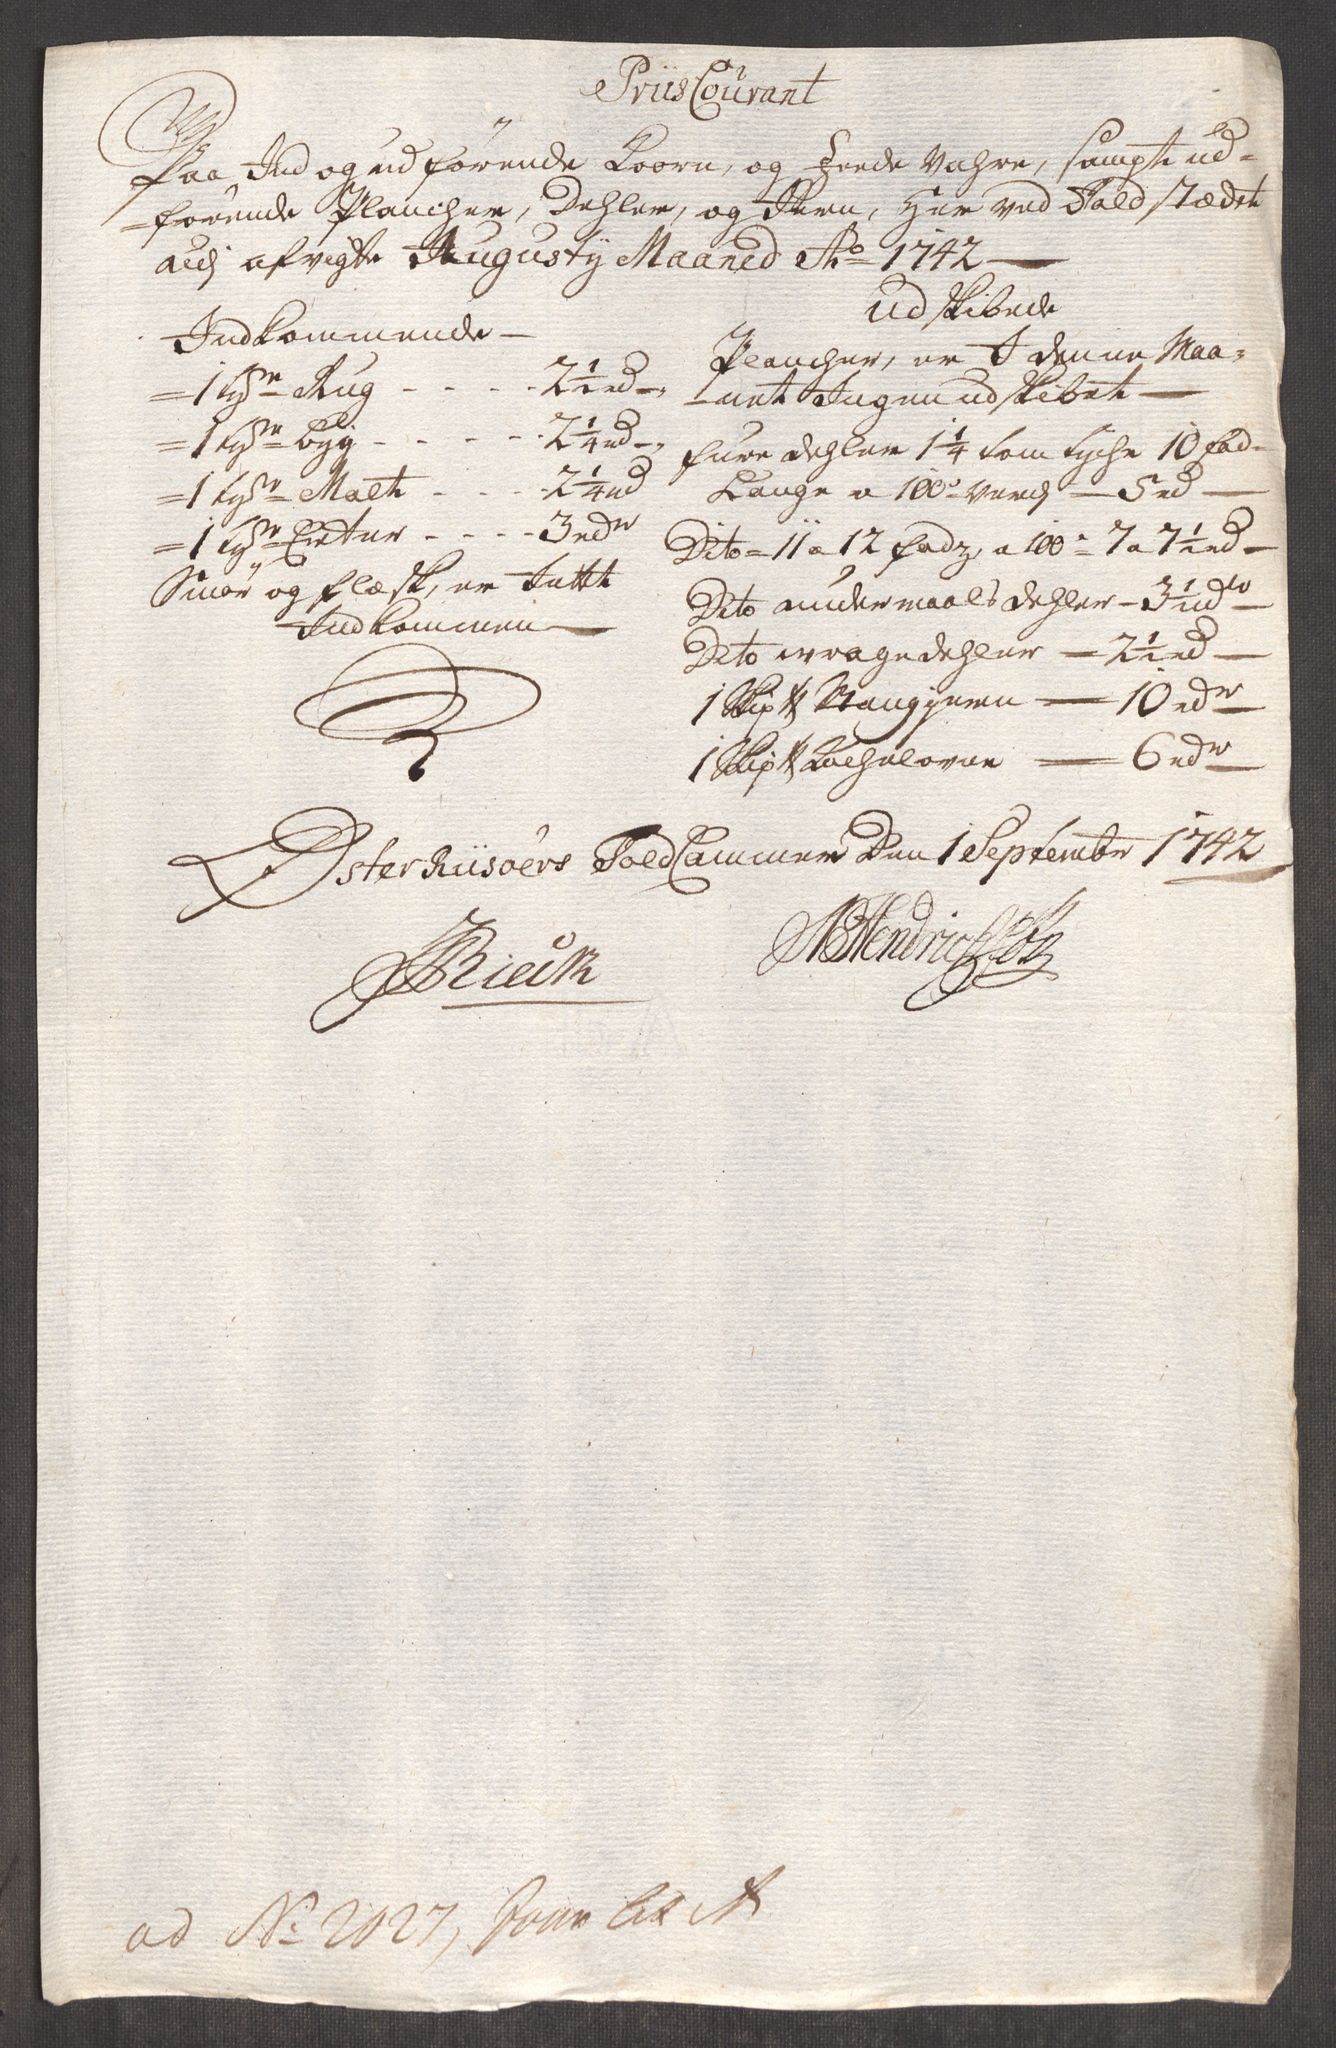 Priis Courant
Paa Ind og udførende Koorn, og Feede Vahre, sampt ud-
førende Plancher, Dehler, og Jern, Her ved Told stædet
udj afvigte Augusty Maaned Ao 1742
Indkommende
1 tdr Rug - - - - 2 1/2 rd
1 tdr byg - - - - 2 1/4 rd
1 tdr Malt - - - - 2 1/4 rd
1 tdr Erter - - - - 3 rdr
Smør og flæsk, er Intet
Indkommen
udskibede
Plancher, er I denne Maa-
net Ingen udskibet
furre dehler 1 1/4 tom tyche 10 fod
Lange a 100de Værdj - 5 rd
Dito 11 a 12 fodz, a 100de 7 a 7 1/2 rd
Dito undermaals dehler - 3 1/2 rdr
Dito vragedehler - 2 1/2 rd
1 Skip℔ Stangjern - 10 rdr
1 Skip℔ Kachelovne - 6 rdr
Øster Riisøers Told Cammer Den 1 September 1742
Rieck
NB Hendrichsen
ad No 2027, Jour Lit A